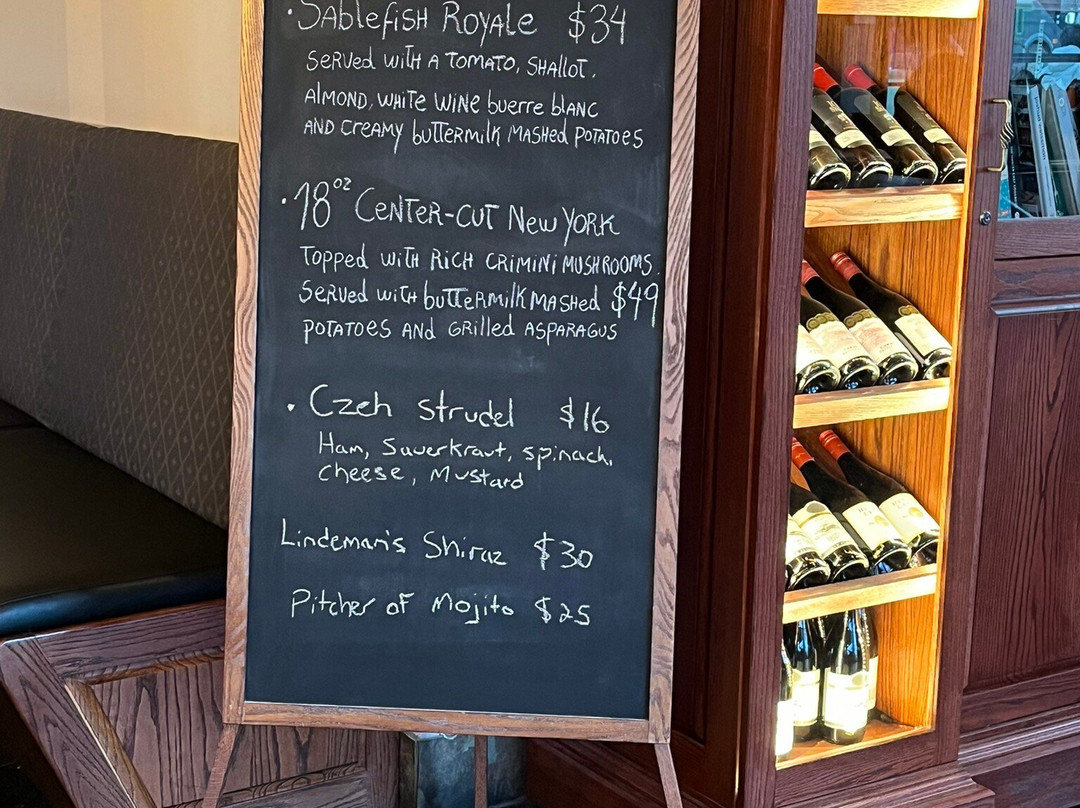 ·Sablefish Royale $34
Served with a tomato, shallot,
almond, white wine buerre blanc
and creamy buttermilk mashed potatoes
·18oz Center-cut New York
Topped with rich crimini mushrooms.
Served with buttermilk mashed $49
potatoes and grilled asparagus
· Czech Strudel $16
Ham, Sauerkraut, spinach,
cheese, Mustard
Lindeman's Shiraz $30
Pitcher of Mojito $25